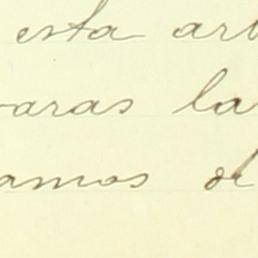 esta art
varas la
amos de